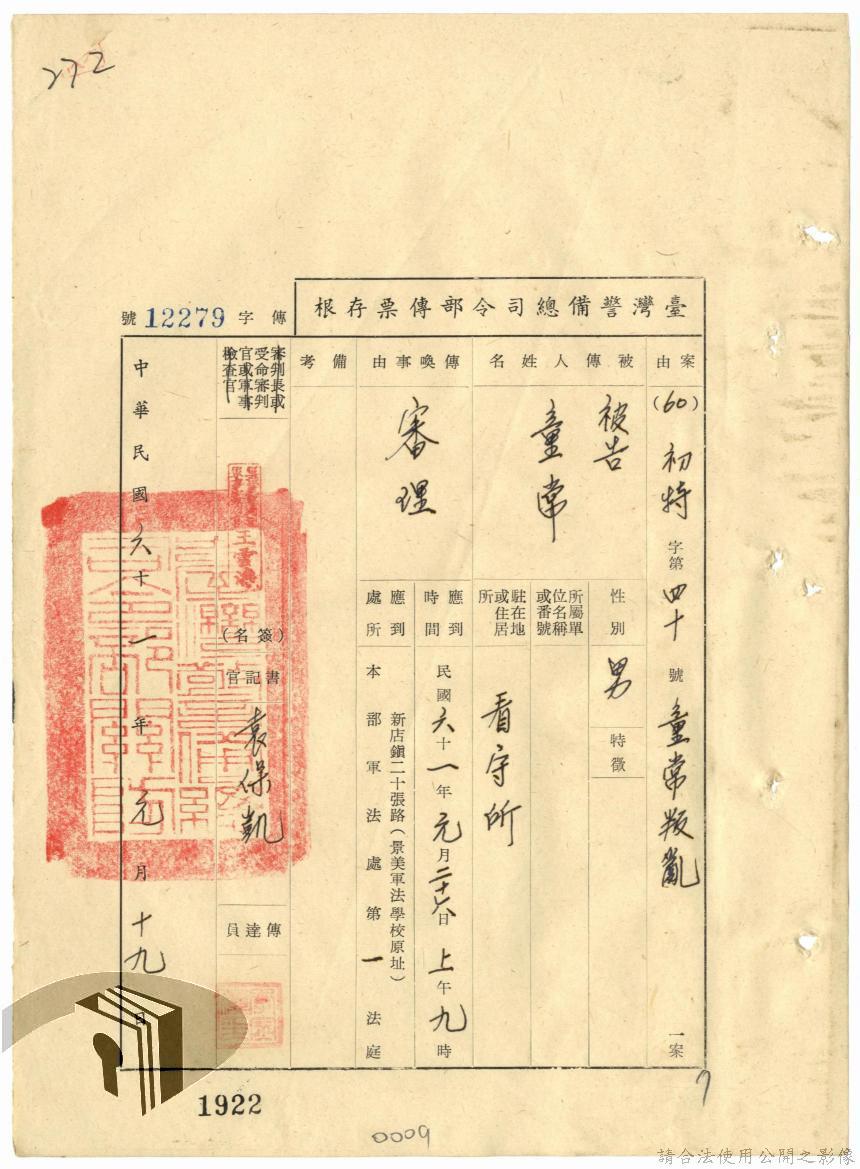 272
臺灣警備總司令部傳票存根
傳字12279號
案由
(60)初特字第四十號童常叛亂一案
被傳人姓名
被告
童常
性別
男
特徵
所屬單位名稱或番號
駐在地或住居所
看守所
傳喚事由
審理
應到時間
民國六十一年元月二十六日上午九時
應到處所
新店鎮二十張路(景美軍法學校原址)
本部軍法處第一法庭
備考
審判長或受命審判官或軍事檢查官
(簽名)
書記官
袁保凱
傳達員
中華民國六十一年元月十九日
1922
0009
7
請合法使用公開之影像